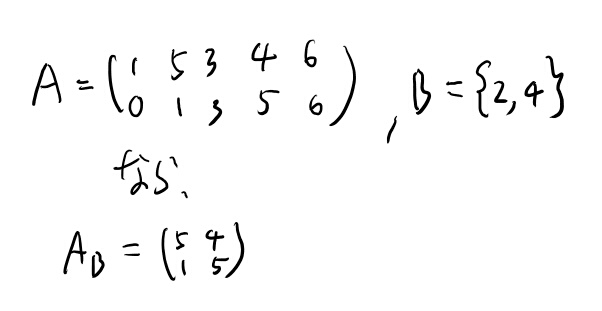 A = (1 5 3 4 6
0 1 3 5 6), B = {2, 4}
なら、
A_B = (5 4
1 5)